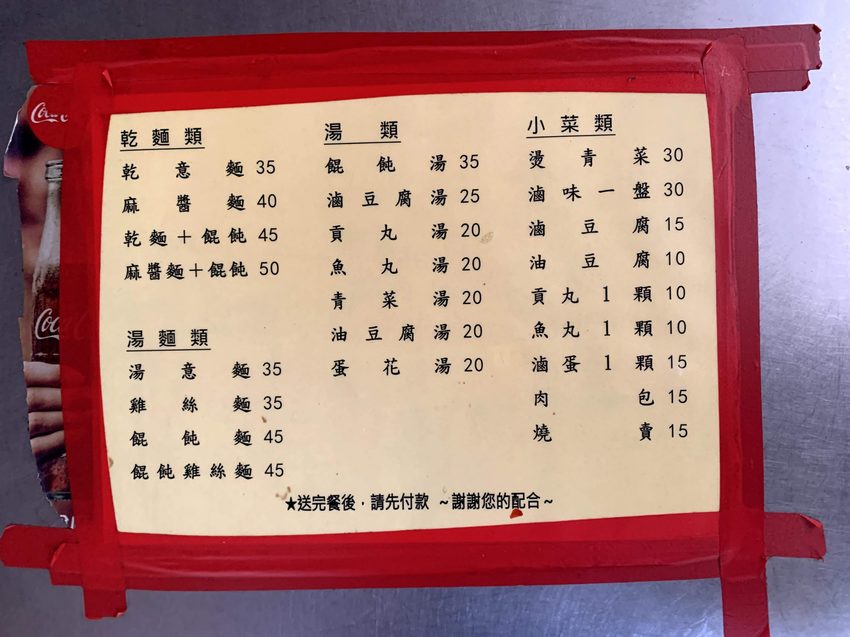 乾麵類
乾意麵 35
麻醬麵 40
乾麵＋餛飩 45
麻醬麵＋餛飩 50
湯麵類
湯意麵 35
雞絲麵 35
餛飩麵 45
餛飩雞絲麵 45
湯類
餛飩湯 35
滷豆腐湯 25
貢丸湯 20
魚丸湯 20
青菜湯 20
油豆腐湯 20
蛋花湯 20
小菜類
燙青菜 30
滷味一盤 30
滷豆腐 15
油豆腐 10
貢丸1顆 10
魚丸1顆 10
滷蛋1顆 15
肉包 15
燒賣 15
★送完餐後，請先付款 ～謝謝您的配合～